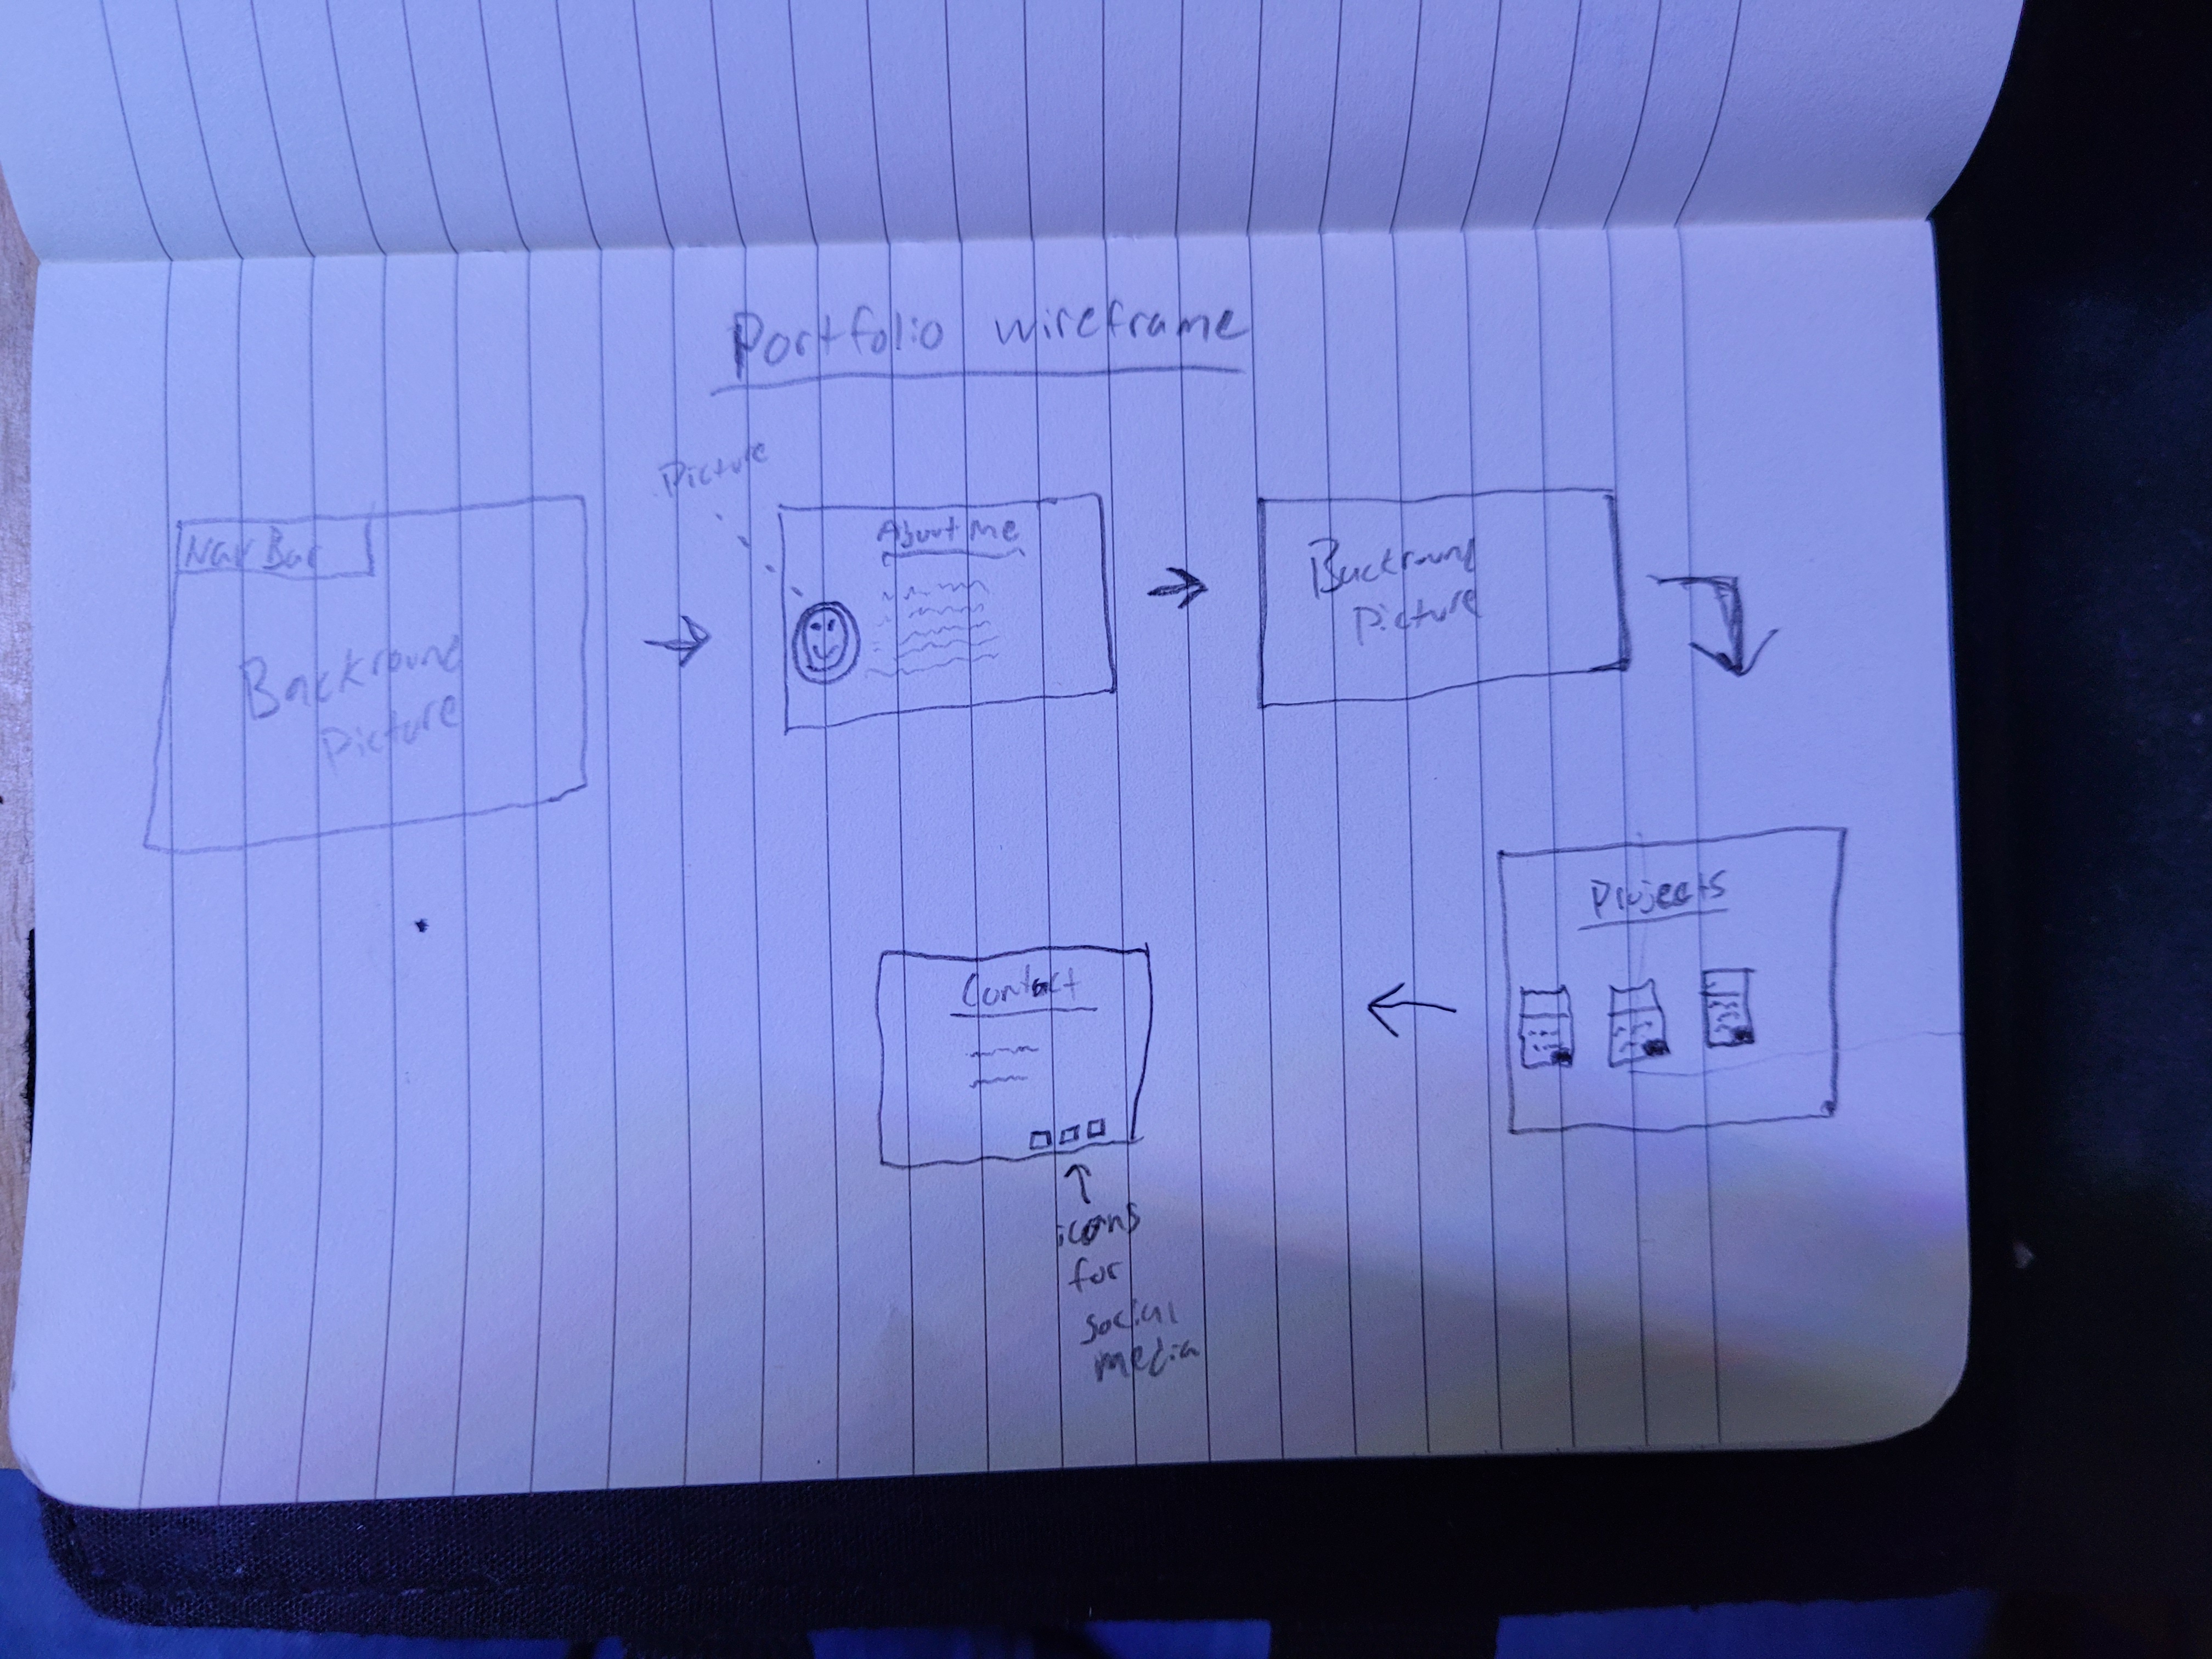 Portfolio wireframe
Nav Bar
Backround
Picture
Picture
About me
Backround
Picture
Projects
Contact
icons
for
social
media